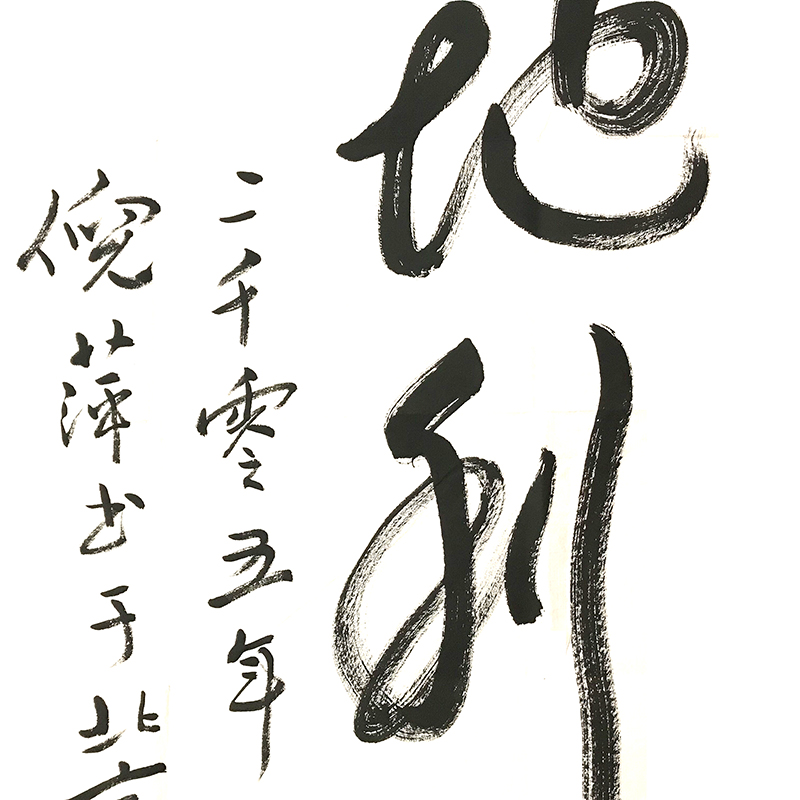 地利
二千零五年
倪萍书于北京